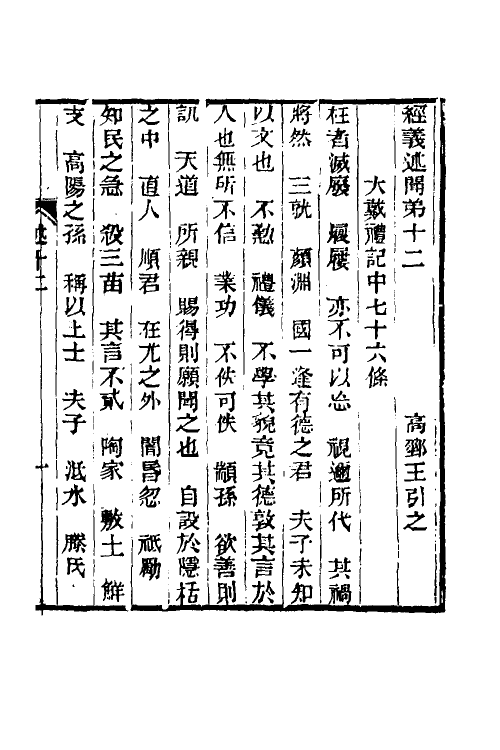 經義述聞弟十二　高郵王引之
大戴禮記中七十六條
枉者滅廢　屨屨　亦不可以忘　視邇所代　其禍
將然　三就　顏淵　國一逢有德之君　夫子未知
以文也　不懃　禮儀　不學其貌竟其德敦其言於
人也無所不信　業功　不佚可佚　顓孫　欲善則
訊　天道　所親　賜得則願聞之也　自設於隱栝
之中　直人　順君　在尤之外　闇昏忽　祗勵
知民之急　殺三苗　其言不貳　陶家　敷土　鮮
支　高陽之孫　稱以上士　夫子　泜水　滕氏
述十二　一